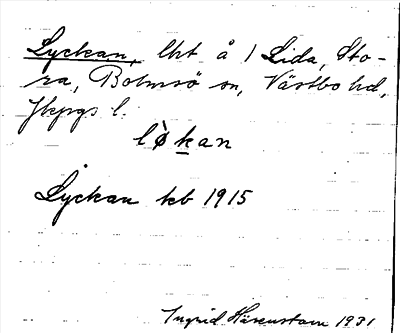 Lyckan, lht å 1 Lida, Sto-
ra, Bolmsö sn, Västbo hd,
Jkpgs l.
lø̀kan
Lyckan kb 1915
Ingrid Härenstam 1931